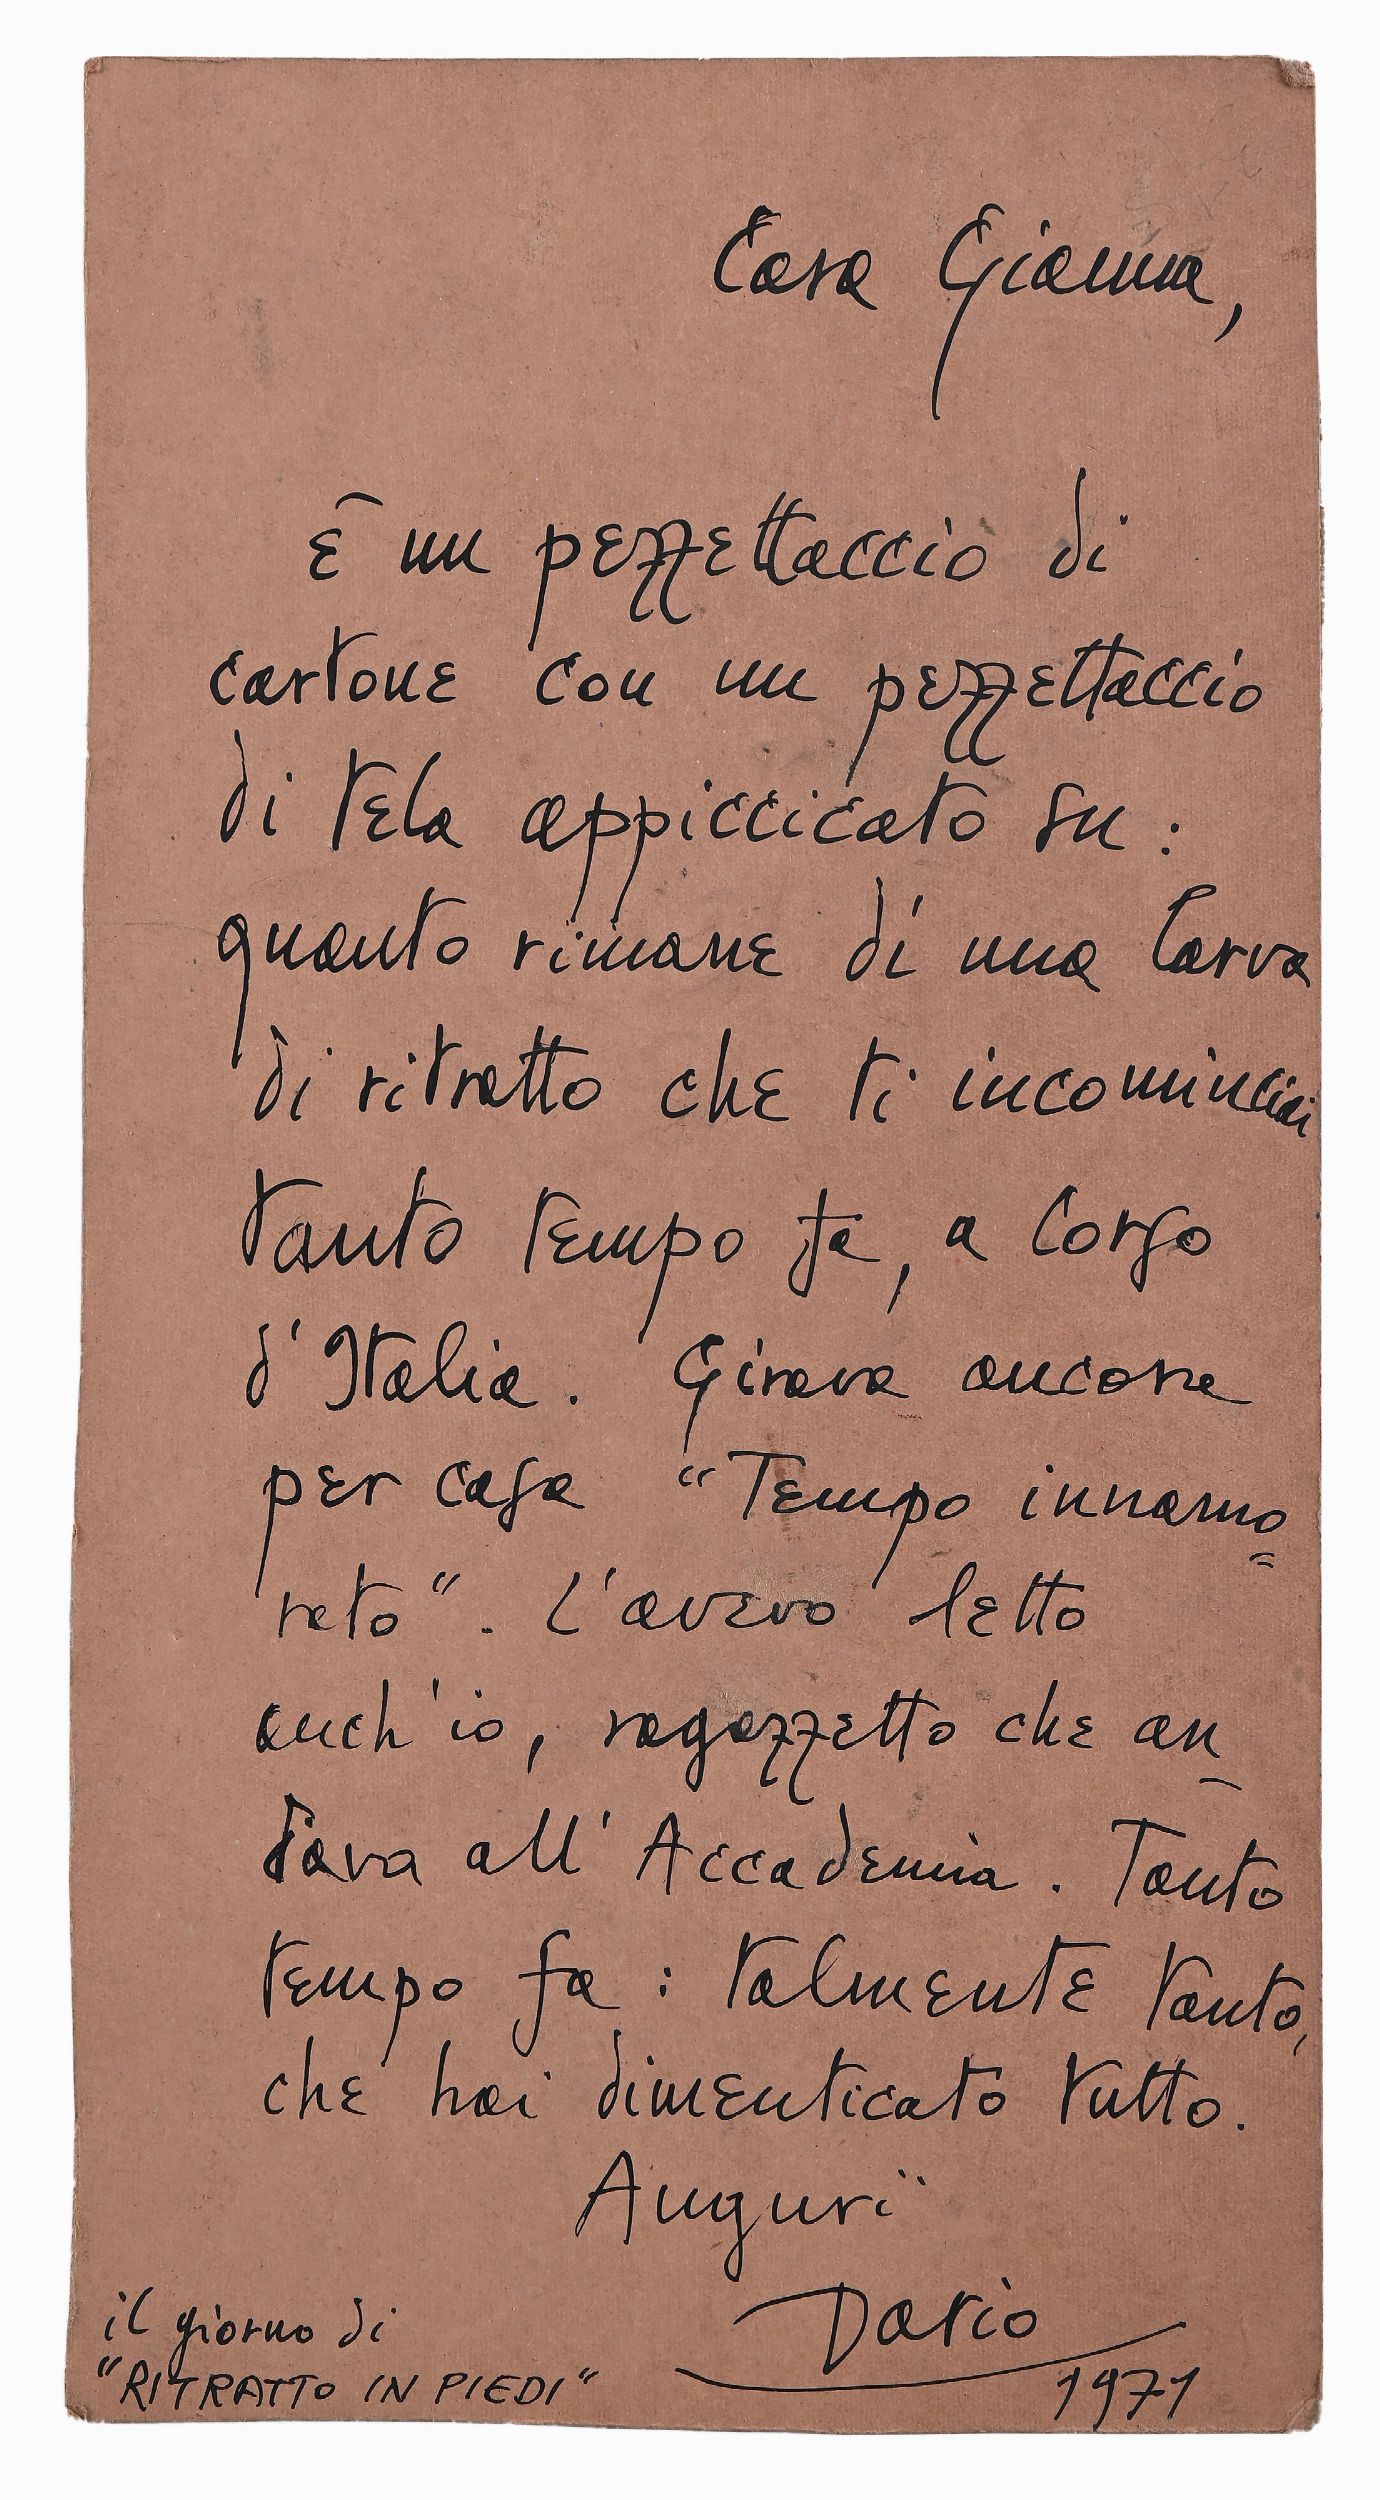 Cara Gianna,
È un pezzettaccio di
cartone con un pezzettaccio
di tela appiccicato su:
quanto rimane di una larva
di ritratto che ti incominciai
tanto tempo fa, a Corso
d'Italia. Girava ancora
per casa "Tempo innamo=
rato". L'avevo letto
anch'io, ragazzetto che an-
dava all'Accademia. Tanto
tempo fa: talmente tanto,
che hai dimenticato tutto.
Auguri
Dario
1971
il giorno di
"RITRATTO IN PIEDI"